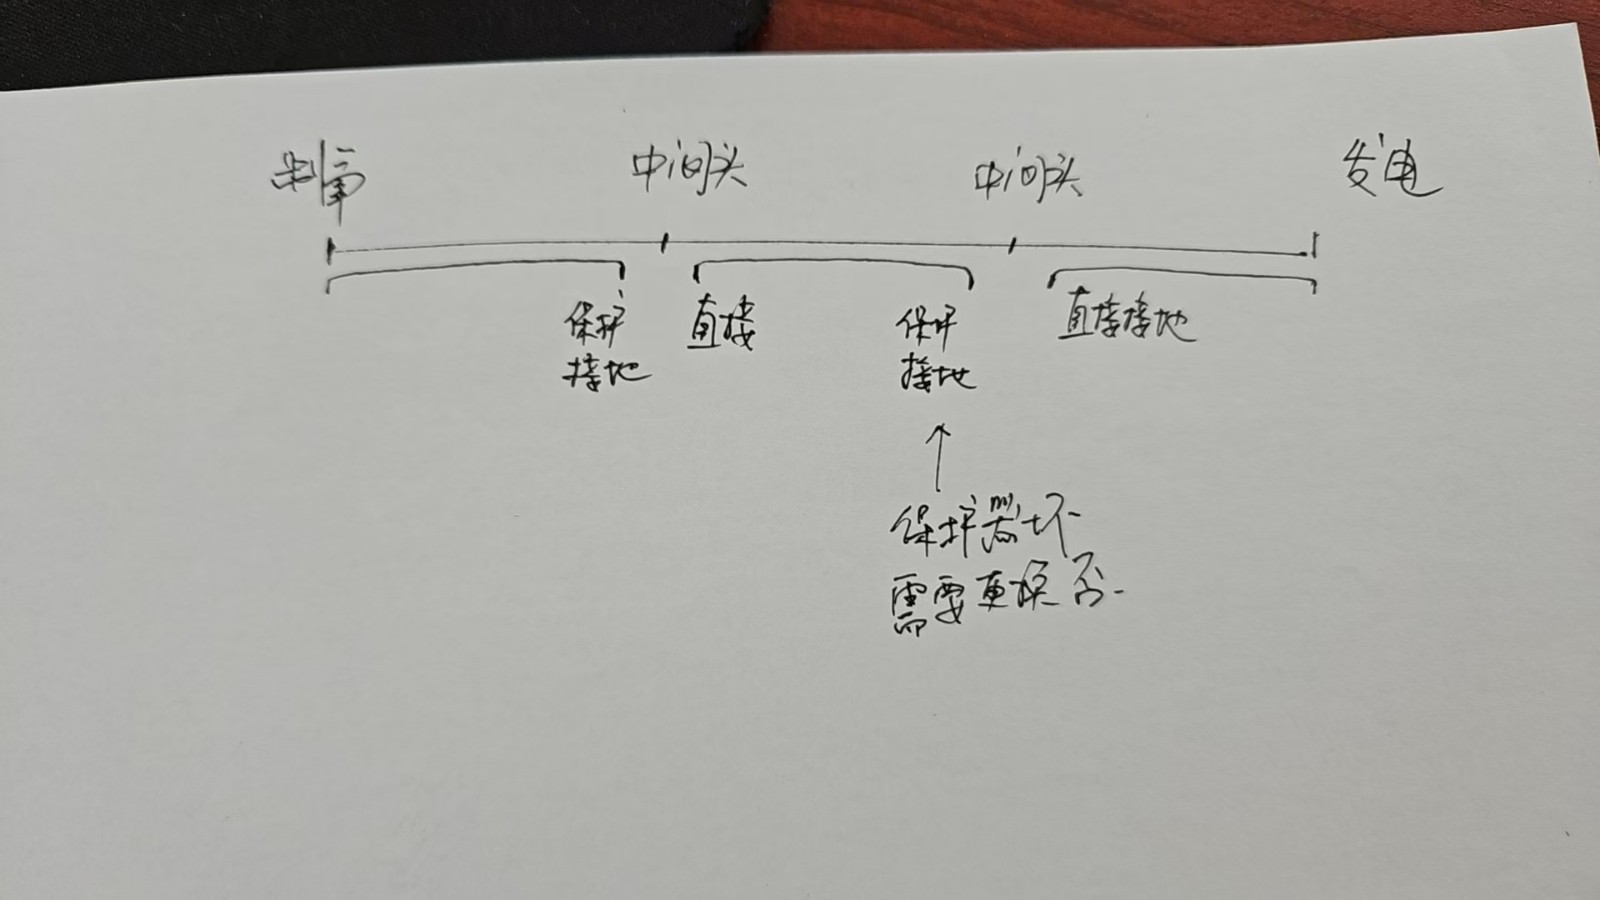 中间头
中间头
发电
保护
接地
直接
保护
接地
直接接地
保护器坏
需要更换否.